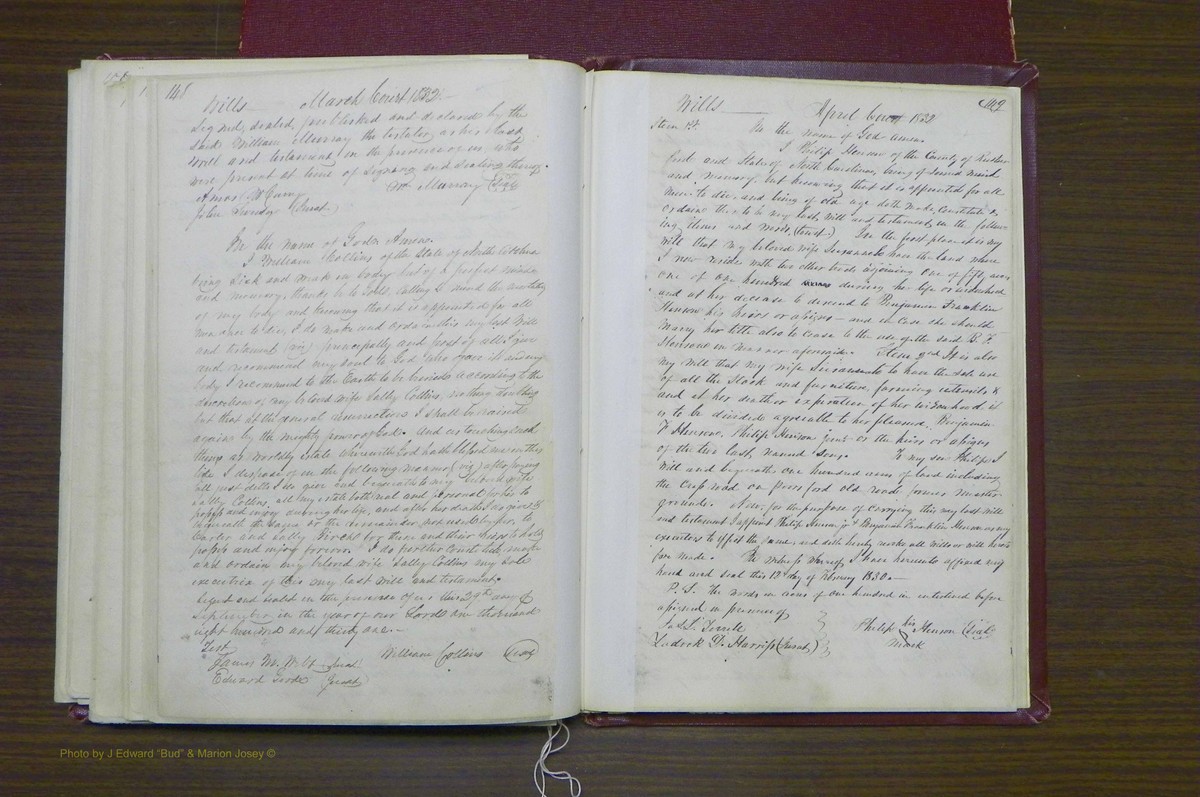 148
Wills March Court 1832
Signed, sealed, published and declared by the
said William Murray the testator, as his last
will and testament, in the presence of us, who
were present at time of signing and sealing thereof
Amos McCurry Wm Murray (Seal)
John (Jurat)
In the name of God Amen
I William Collins of the State of North Carolina
being Sick and weak in body but of a perfect mind
and memory thanks be to God, calling to mind the mortality
of my body and knowing that it is appointed for all
men once to die, I do make and ordain this my last Will
and testament (viz) principally and first of all I give
and recommend my soul to God who gave it and my
body I recommend to the Earth to be buried according to the
discretion of my beloved wife Sally Collins, nothing doubting
but that at the general resurrection I shall be raised
again by the mighty power of God. And as touching such
things as worldly estate wherewith God hath blessed me in this
life I dispose of in the following manner (viz) after paying
all just debts I do give and bequeath to my beloved wife
Sally Collins, all my estate both real and personal for her to
possess and enjoy during her life, and after her death I do give &
bequeath the same or the remainder, not used by her, to
Carter and Sally for them and their heirs to hold
possess and enjoy forever. I do further constitute, make
and ordain my beloved wife Sally Collins my sole
execution of this my last will and testament.
Signed and seald in the presence of us this 29th day of
September in the year of our Lord one thousand
eight hundred and thirty one.
Test
James M. Jurat William Collins (Seal)
Edward Goode Jurat
Wills April Court 1832 149
In the name of God Amen.
I Philip Henson of the County of Ruther
ford and State of North Carolina, being of sound mind
and memory, but knowing that it is appointed for all
men to die, and being of old age doth make, constitute &
ordain this to be my last will and testament, in the follow
ing items and mode, (first.) In the first place it is my
will that my beloved wife Susannah have the land where
I now reside with two other tracts adjoining one of fifty acres
one of one hundred acres during her life or widowhood
and at her decease to descend to Benjamin Franklin
Henson his heirs or assigns - and in case she should
marry her title also to cease to the use of the said B. F.
Henson in manner aforesaid. Item 2nd It is also
my will that my wife Susannah to have the sole use
of all the Stock and furniture, farming utensils &
and at her death or expiration of her widowhood it
is to be divided agreeable to her pleasure, Benjamin
F Henson, Philip Henson Junr or the heirs or assigns
of the two last named sons. To my son Philip I
will and bequeath one hundred acres of land including
the Cross road on old road former muster
ground. Now, for the purpose of carrying this my last Will
and testament I appoint Philip Henson jr & Benjamin Franklin Henson my
executors to effect the same, and doth hereby revoke all wills or will hereto
fore made. In witness whereof I have hereunto affixed my
hand and seal this 12 day of February 1830.
P.S. The words in acres of one hundred in interlined before
assigned in presence of
Jas. L. Terrell Philip his Henson (Seal)
Zadock D. Harriss (Jurat) mark
Photo by J Edward "Bud" & Marion Josey ©